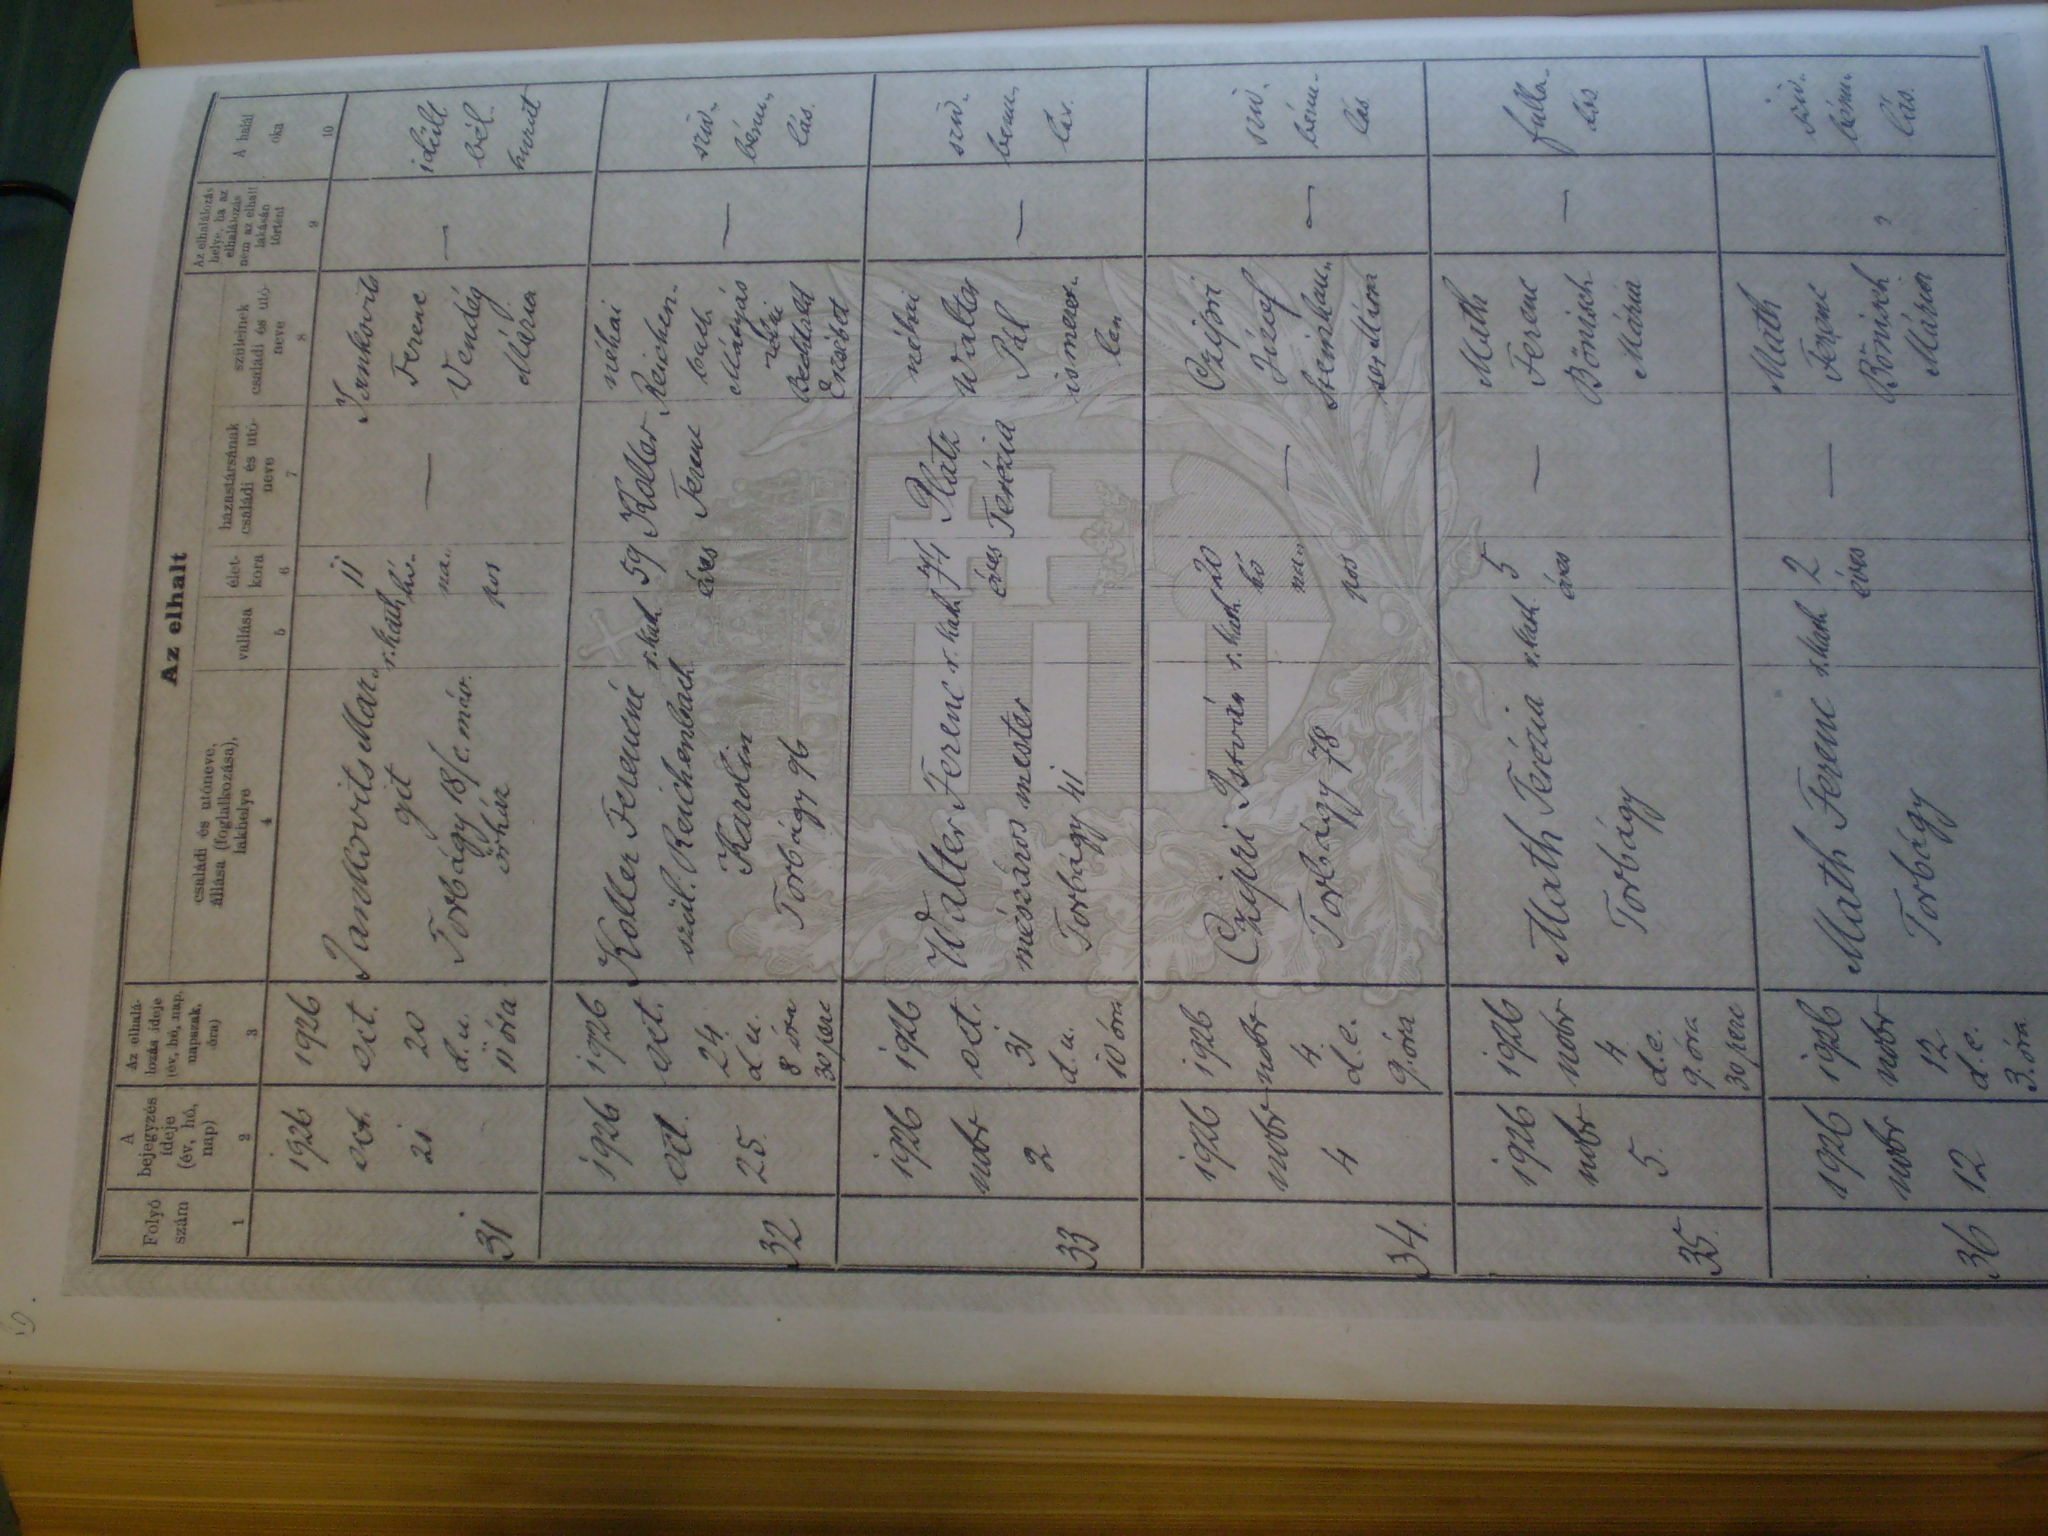 Az elhalt
Folyó
szám
A
bejegyzés
ideje
(év, hó,
nap)
Az elhalá-
lozás ideje
(év, hó, nap,
napszak,
óra)
családi és utóneve,
állása (foglalkozása),
lakhelye
vallása
élet-
kora
házastársának
családi és utó-
neve
szüleinek
családi és utó-
neve
Az elhalálozás
helye, ha az
elhalálozás
nem az elhalt
lakásán
történt
A halál
oka
1
2
3
4
5
6
7
8
9
10
31
1926
oct.
21
1926
oct.
20
d.u.
11 óra
Jankovits Mar„
git
Torbágy 18/c. máv.
őrház
r. kath
11
hó„
na„
pos
—
Jankovits
Ferenc
Vendég
Mária
—
idült
bél„
hurut
32
1926
oct.
25.
1926
oct.
24.
d.u.
8 óra
30 perc
Koller Ferencné
szül. Reichenbach
Karolin
Torbágy 96
r. kath
59
éves
Koller
Ferenc
néhai
Reichen„
bach
Mátyás
Erzsébet
—
szív„
bénu„
lás.
33
1926
nobr
2
1926
oct.
31
d.u.
10 óra
Walter Ferenc
mészáros mester
Torbágy 41
r. kath
74
éves
Platz
Terézia
néhai
Walter
Pál
ismeret„
len
—
szív„
bénu„
lás.
34.
1926
nobr
4
1926
nobr
4.
d.e.
9. óra
Czipri István
Torbágy 78
r. kath.
20
hó
na„
pos
—
Czipri
József
Steinhau„
ser Mária
—
szív„
bénu„
lás
35.
1926
nobr
5.
1926
nobr
4.
d.e.
9. óra
30 perc
Math Terézia
Torbágy
r. kath.
5
éves
—
Math
Ferenc
Bönisch
Mária
—
fulla„
dás
36
1926
nobr
12
1926
nobr
12.
d.e.
3. óra
Math Ferenc
Torbágy
r. kath
2
éves
—
Math
Ferenc
Bönisch
Mária
szív„
bénu„
lás.